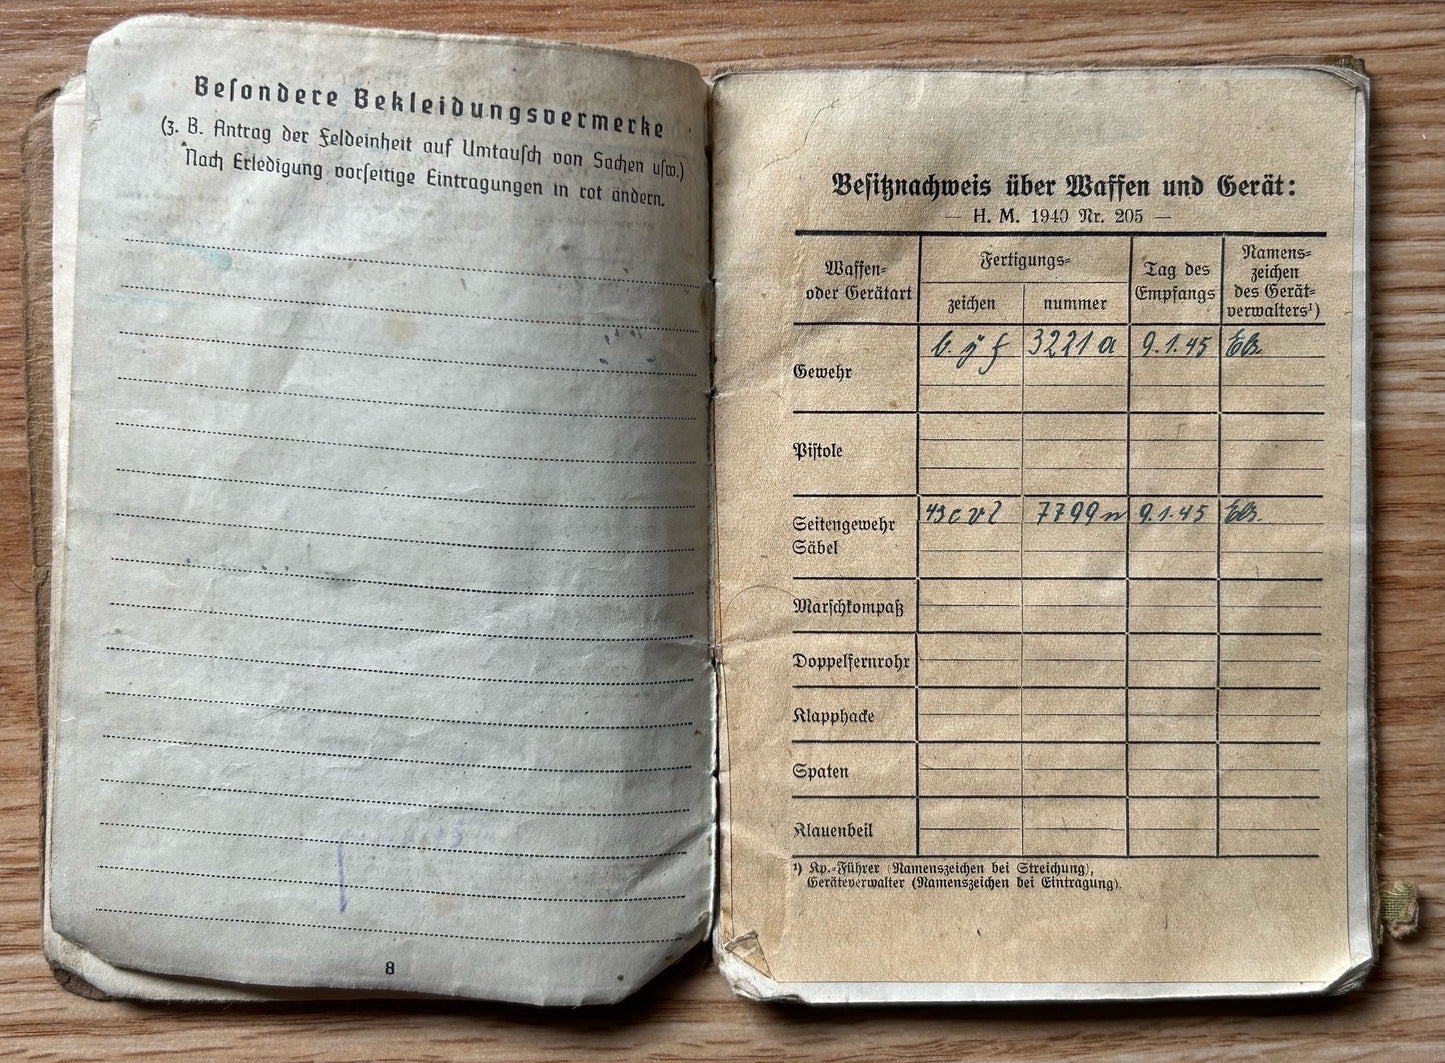 Besondere Bekleidungsvermerke
(z. B. Antrag der Feldeinheit auf Umtausch von Sachen usw.)
Nach Erledigung vorseitige Eintragungen in rot ändern.
8
Besitznachweis über Waffen und Gerät:
— H. M. 1940 Nr. 205 —
Waffen- oder Gerätart
Fertigungs-
zeichen
nummer
Tag des Empfangs
Namens-
zeichen
des Gerät-
verwalters¹)
Gewehr
3221 a 9.1.45
Pistole
Seitengewehr
Säbel
43 cvl 7799 n 9.1.45
Marschkompaß
Doppelfernrohr
Klapphacke
Spaten
Klauenbeil
¹) Kp.-Führer (Namenszeichen bei Streichung),
Geräteverwalter (Namenszeichen bei Eintragung).